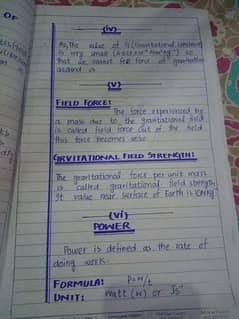 (iv)
As, The value of G (Gravitational constant)
is very small so
that we cannot feel force of gravitation
around
(v)
FIELD FORCE:
The force experienced by
a mass due to the gravitational field
is called field force out of the field
this force becomes zero.
GRVITATIONAL FIELD STRENGTH:
The gravitational force per unit mass
is called gravitational field strength
It value near surface of Earth is
(vi)
POWER
Power is defined as the rate of
doing work.
FORMULA: P=W/t
UNIT: Watt (W) or Js⁻¹